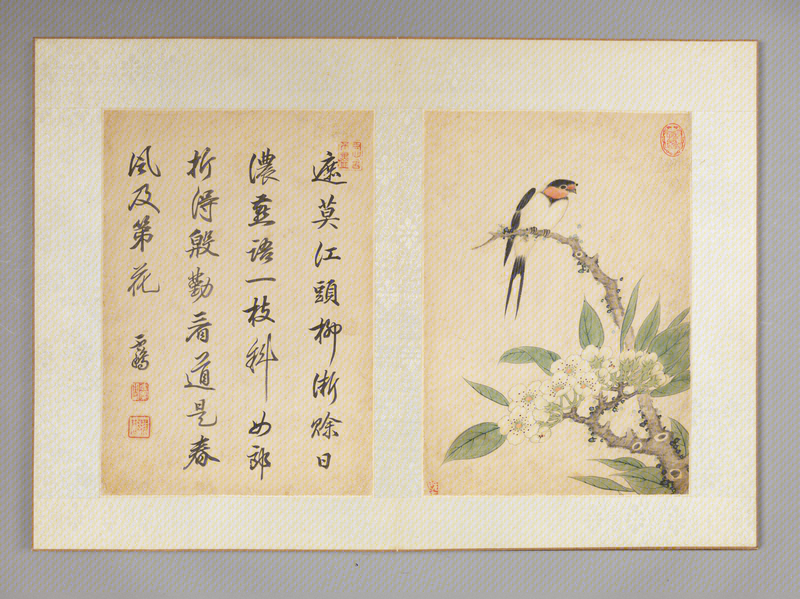 遮莫江頭柳漸賒日
濃燕語一枝斜女郎
折得殷勤看道是春
風及第花